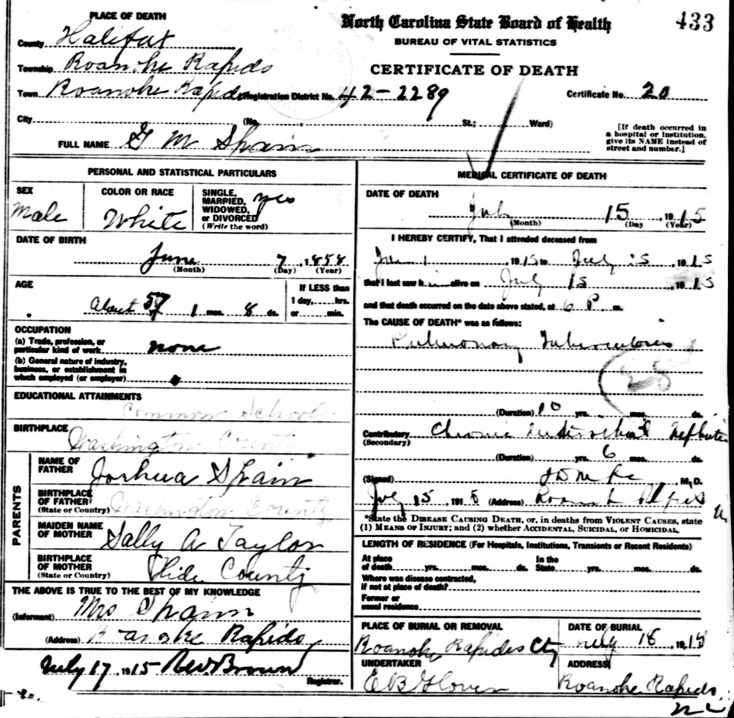 PLACE OF DEATH
North Carolina State Board of Health 433
BUREAU OF VITAL STATISTICS
CERTIFICATE OF DEATH
County Halifax
Township Roanoke Rapids
Town Roanoke Rapids Registration District No. 42-2289 Certificate No. 20
City (No. St.; Ward)
FULL NAME G M Spain
[If death occurred in
a hospital or institution,
give its NAME instead of
street and number.]
PERSONAL AND STATISTICAL PARTICULARS
SEX
Male
COLOR OR RACE
White
SINGLE,
MARRIED,
WIDOWED,
or DIVORCED
(Write the word)
yes
DATE OF BIRTH
June 7, 1858
(Month) (Day) (Year)
AGE
About 57 1 mos. 8 ds.
If LESS than
1 day,....hrs.
or....min.
OCCUPATION
(a) Trade, profession, or
particular kind of work none
(b) General nature of industry,
business, or establishment in
which employed (or employer)
EDUCATIONAL ATTAINMENTS
Common School
BIRTHPLACE
Washington County
PARENTS
NAME OF
FATHER
Joshua Spain
BIRTHPLACE
OF FATHER
(State or Country)
Washington County
MAIDEN NAME
OF MOTHER
Sally A Taylor
BIRTHPLACE
OF MOTHER
(State or Country)
Hide County
THE ABOVE IS TRUE TO THE BEST OF MY KNOWLEDGE
(Informant) Mrs Spain
(Address) Roanoke Rapids
July 17 1915 RW Brown
Registrar.
MEDICAL CERTIFICATE OF DEATH
DATE OF DEATH
July 15, 1915
(Month) (Day) (Year)
I HEREBY CERTIFY, That I attended deceased from
1915 to July 15 1915
that I last saw h alive on July 15 1915
and that death occurred on the date above stated, at 6 P m.
The CAUSE OF DEATH* was as follows:
Pulmonary Tuberculosis
28
(Duration) 10 yrs. mos. ds.
Contributory Chronic Interstitial Nephritis
(Secondary)
(Duration) 6 yrs. mos. ds.
(Signed) M.D.
July 15 1915 (Address) Roanoke Rapids
*State the DISEASE CAUSING DEATH, or, in deaths from VIOLENT CAUSES, state
(1) MEANS OF INJURY; and (2) whether ACCIDENTAL, SUICIDAL, OR HOMICIDAL.
LENGTH OF RESIDENCE (For Hospitals, Institutions, Transients or Recent Residents)
At place
of death....yrs....mos....ds.
In the
State....yrs....mos....ds.
Where was disease contracted,
if not at place of death?
Former or
usual residence
PLACE OF BURIAL OR REMOVAL
Roanoke Rapids Cty
DATE OF BURIAL
July 16 1915
UNDERTAKER
E B Glover
ADDRESS
Roanoke Rapids
NC